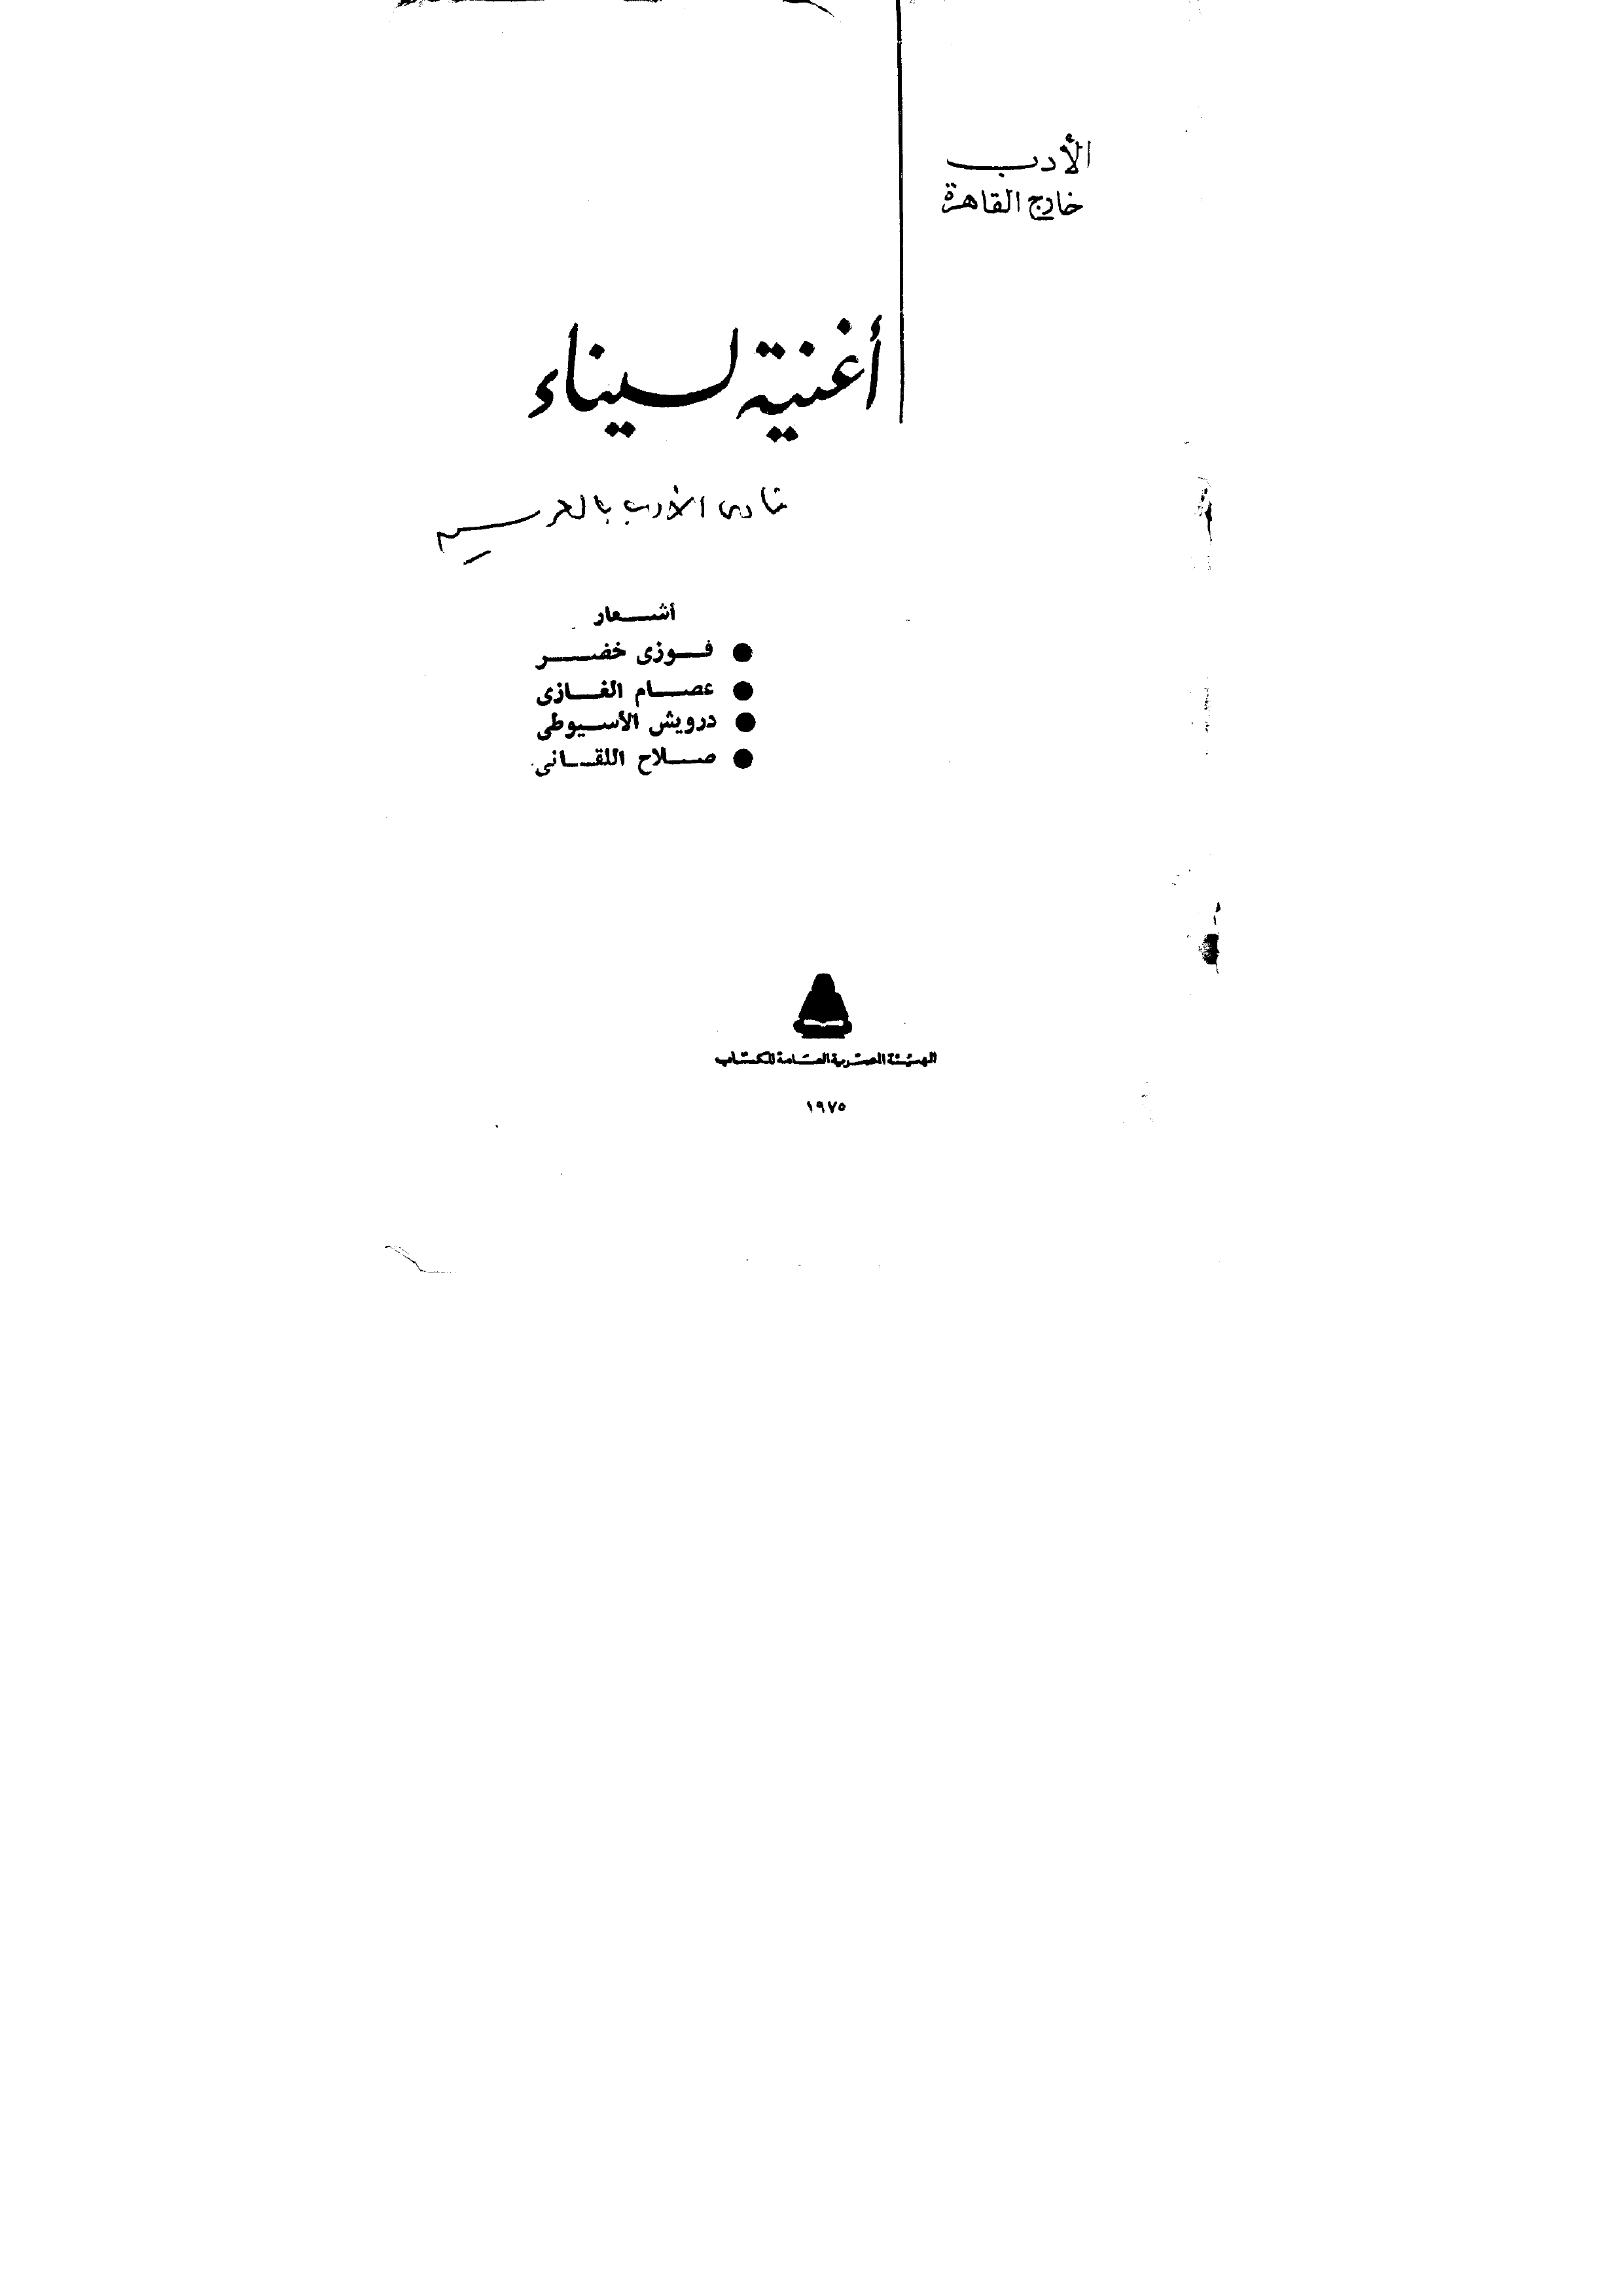 الأدب
خارج القاهرة
أغنية لسيناء
نادى الأدب بالعريش
أشعار
● فوزى خضر
● عصام الغازى
● درويش الأسيوطى
● صلاح اللقانى
الهيئة المصرية العامة للكتاب
١٩٧٥